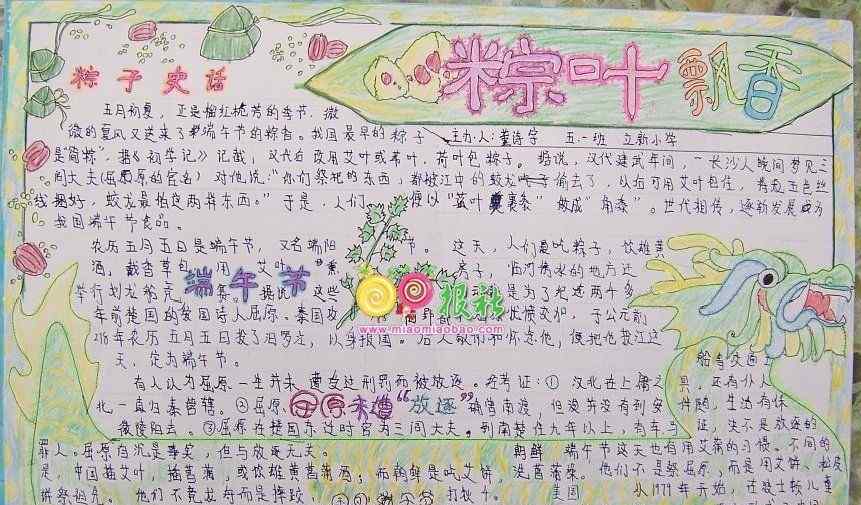 粽叶飘香
粽子史话
五月初夏，正是榴红桃芳的季节，微
微的夏风又送来了端午节的粽香。我国最早的粽子
主办人：董诗宇 五.一班 立新小学
是"筒粽"，据《初学记》记载；汉代后改用艾叶或苇叶、荷叶包粽子。据说，汉代建武年间，一长沙人晚间梦见三
闾大夫(屈原的官名)对他说："你们祭祀的东西，都被江中的蛟龙偷去了，以后可用艾叶包住，再用五色丝
线捆好，蛟龙最怕这两样东西。"于是，人们便以"菰叶裹黍"做成"角黍"。世代相传，逐渐发展成为
我国端午节食品。
农历五月五日是端午节，又名端阳节。这天，人们要吃粽子，饮雄黄
酒，戴香草包，用艾叶 房子，临河傍水的地方还
端午节
举行划龙船竞赛。据说，这些 是为了纪念两千多
年前楚国的爱国诗人屈原。秦国攻 忧愤交加，于公元前
278年农历五月五日投了汨罗江，以身报国。后人敬仰和怀念他，便把他投江这
天，定为端午节。
报社
www.miaomiaobao.com
有人认为屈原一生并未 南女这刑罚而被放逐。考证：① 汉北在上庸之
屈原未遭"放逐"
北一直归秦管辖。②屈原 确曾南渡，但没并没有到安
陵阳去。③屈原在楚国东迁时官为三闾大夫。到南楚住九年以上，有车马
船等交通工
具，还有仆人
伴随，生活有保
证，决不是放逐的
罪人。屈原自沉是事实，但与放逐无关。
朝鲜 端午节这天也有用艾蒿的习惯。不同的
是，中国插艾叶，插菖蒲，或饮雄黄菖蒲酒；而朝鲜是吃艾饼，洗菖蒲澡。他们不是祭屈原，而是用艾饼、
祭祖先。他们不竞龙舟而是摔跤、
美国 从1979年开始，在波士顿儿童